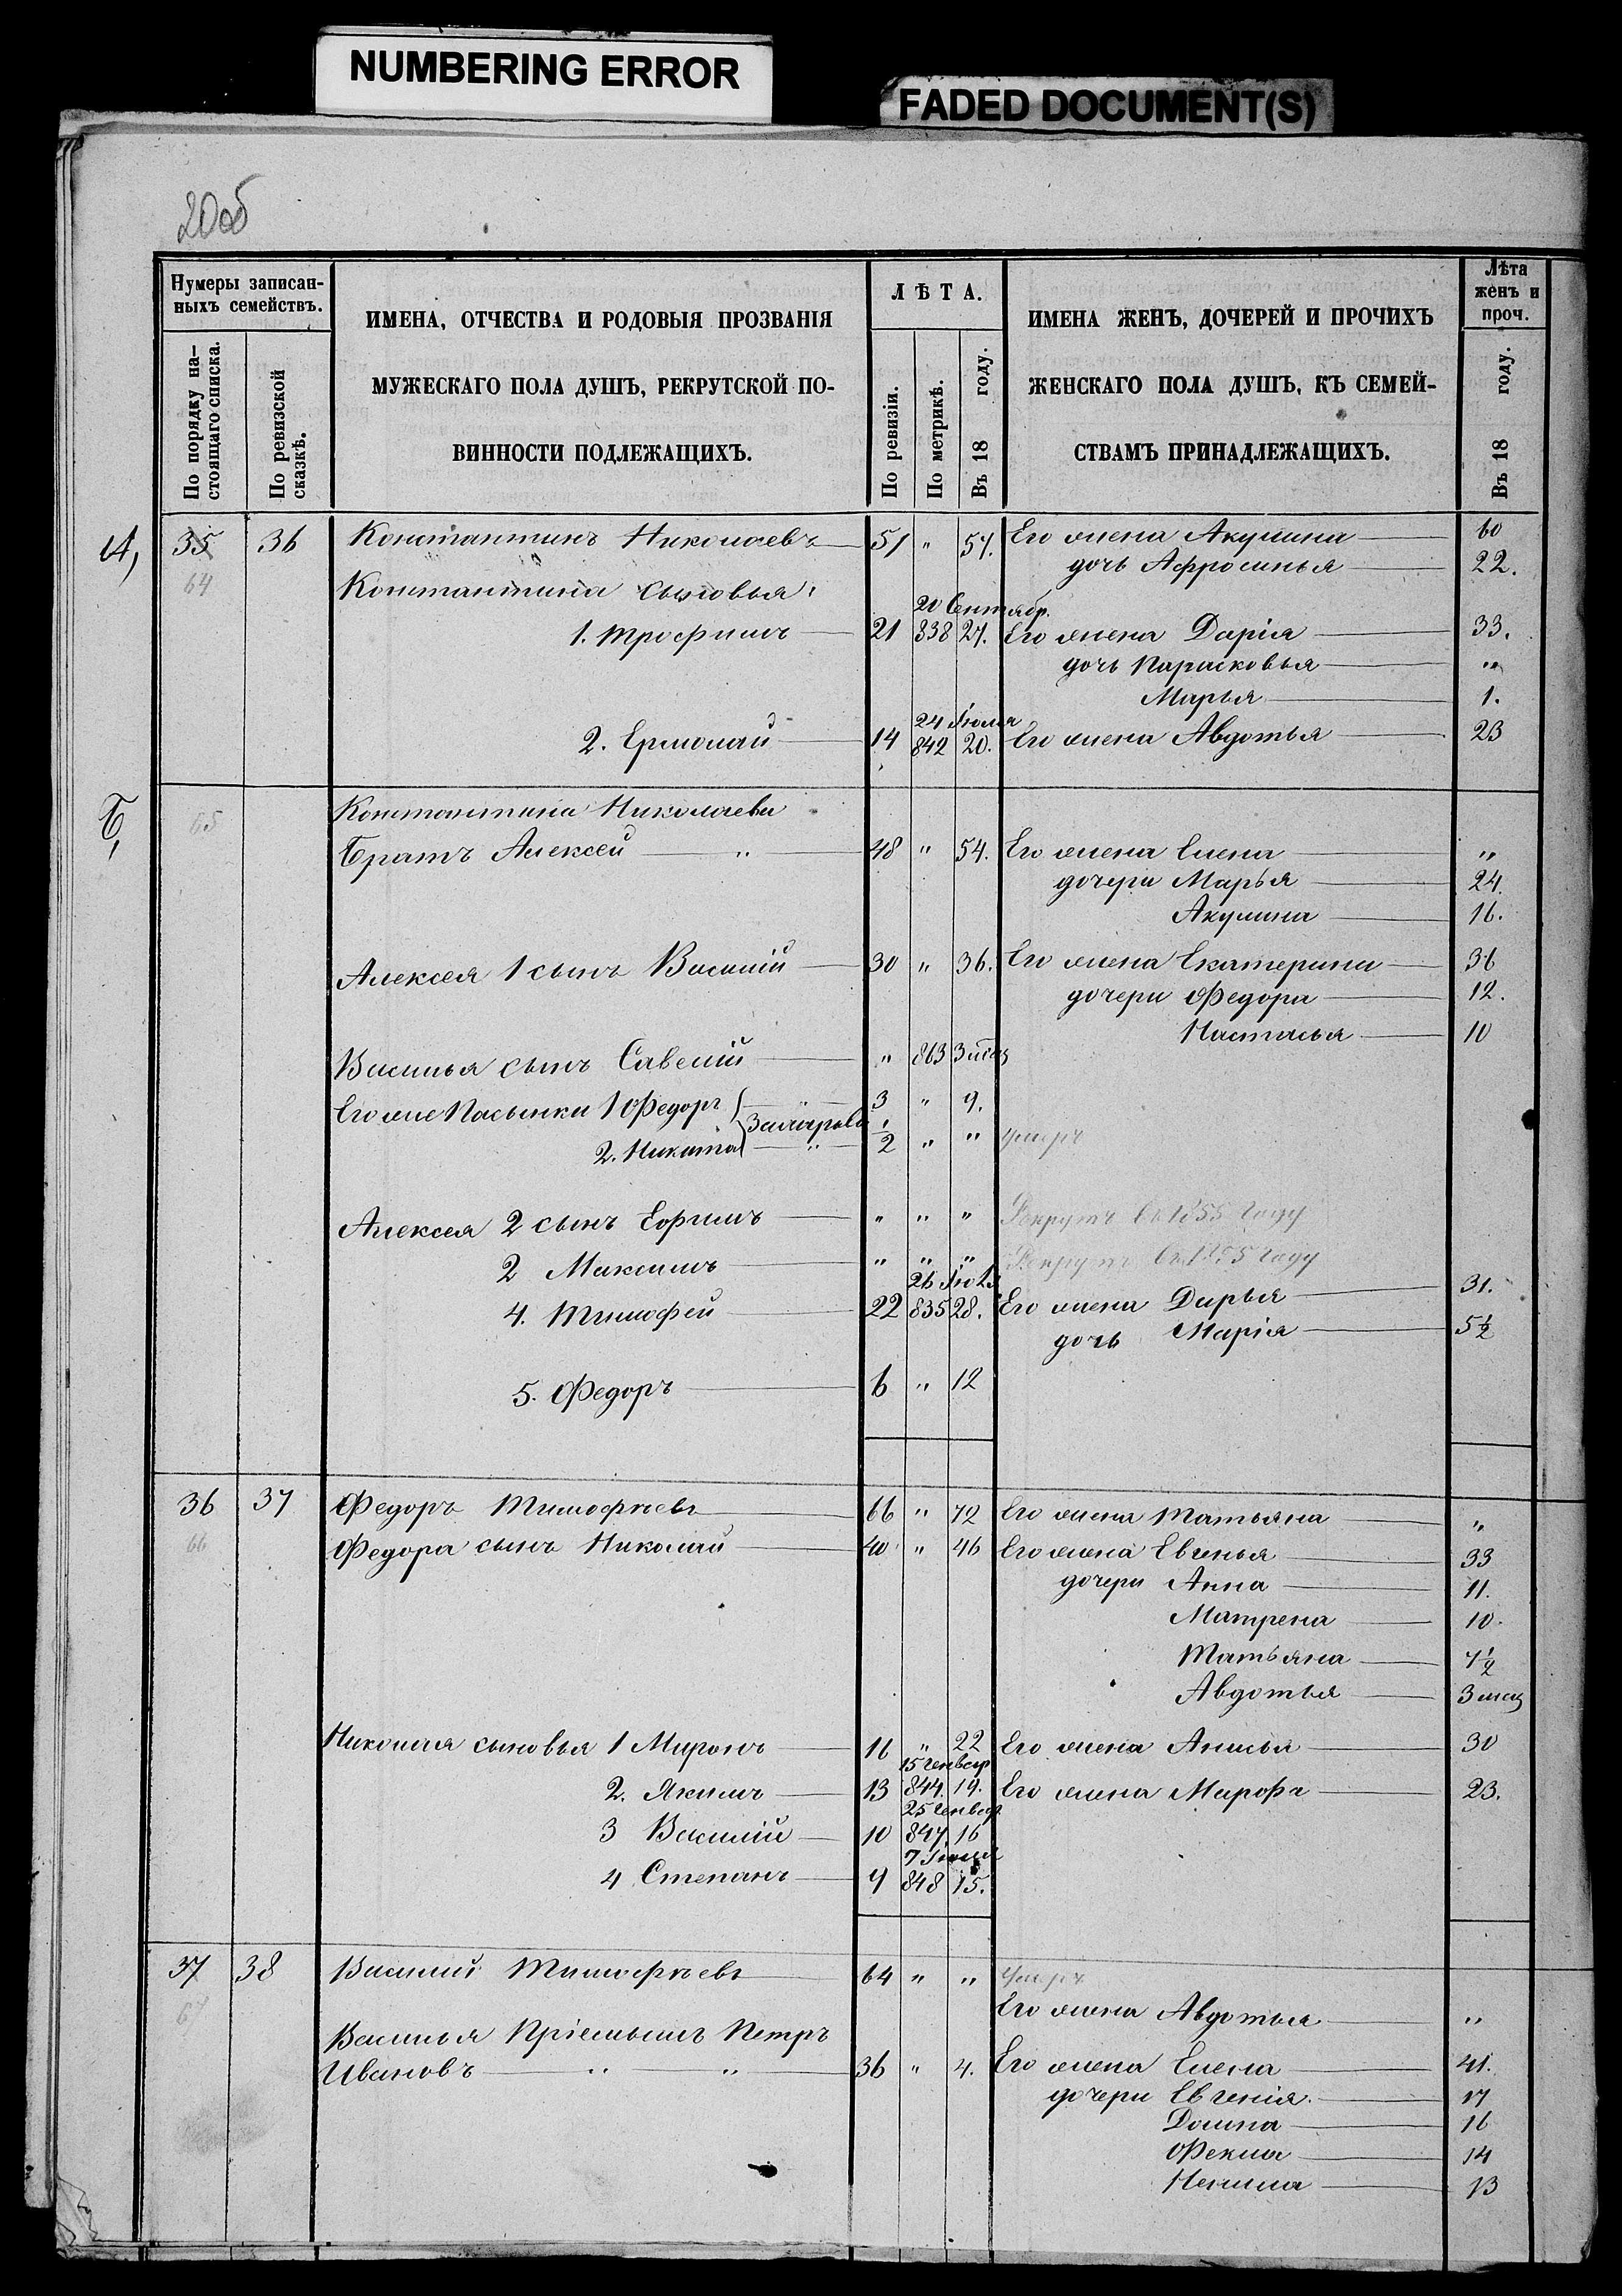 NUMBERING ERROR
FADED DOCUMENT(S)
20об
Нумеры записан-
ныхъ семействъ.
По порядку на-
стоящаго списка.
По ревизской
сказкѣ.
ИМЕНА, ОТЧЕСТВА И РОДОВЫЯ ПРОЗВАНІЯ
МУЖЕСКАГО ПОЛА ДУШЪ, РЕКРУТСКОЙ ПО-
ВИННОСТИ ПОДЛЕЖАЩИХЪ.
ЛѢТА.
По ревизіи.
По метрикѣ.
Въ 18 году.
ИМЕНА ЖЕНЪ, ДОЧЕРЕЙ И ПРОЧИХЪ
ЖЕНСКАГО ПОЛА ДУШЪ, КЪ СЕМЕЙ-
СТВАМЪ ПРИНАДЛЕЖАЩИХЪ.
Лѣта
женъ и
проч.
Въ 18 году.
А, 35 36 Константинъ Николаевъ 51 " 57. Его жена Акулина 60
64 дочь Афросинья 22.
Константина сыновья:
20 Сентябр.
1. Трофимъ 21 838 27. Его жена Дарія 33.
дочь Парасковья "
Марья 1.
24 Іюля
2. Ермолай 14 842 20. Его жена Авдотья 23
Б, 65 Константина Николаева
Братъ Алексей " 48 " 54. Его жена Елена "
дочери Марья 24.
Акулина 16.
Алексея 1 сынъ Василій 30 " 36. Его жена Екатерина 36
дочери Федора 12.
Настасья 10
Василья сынъ Савелій " 863 3 мѣс
Его же Пасынки 1 Федоръ 3 " 9.
2. Никита 1/2 " " умеръ
Алексея 2 сынъ Ефимъ " " " Рекрутъ въ 1855 году
2 Максимъ " " " Рекрутъ въ 1855 году
4. Тимофей 22 835 28. Его жена Дарья 31.
дочь Марія 5 1/2
5. Федоръ 6 " 12
36 37 Федоръ Тимофѣевъ 66 " 72 Его жена Татьяна "
66 Федора сынъ Николай 40 " 46 Его жена Евгенья 33
дочери Анна 11.
Матрена 10.
Татьяна 7 1/2
Авдотья 3 мѣсц
Николая сыновья 1 Миронъ 16 " 22 Его жена Анисья 30
15 Генвар
2. Якимъ 13 844. 19. Его жена Марофа 23.
25 Генвар
3 Василій 10 847. 16
7 Іюля
4 Степанъ 9 848 15.
37 38 Василий Тимофѣевъ 64 " " умеръ
67 Его жена Авдотья "
Василья Пріемышъ Петръ
Ивановъ " " 36 " 4. Его жена Елена 41.
дочери Евгенія 17
Домна 16
Фекла 14
13